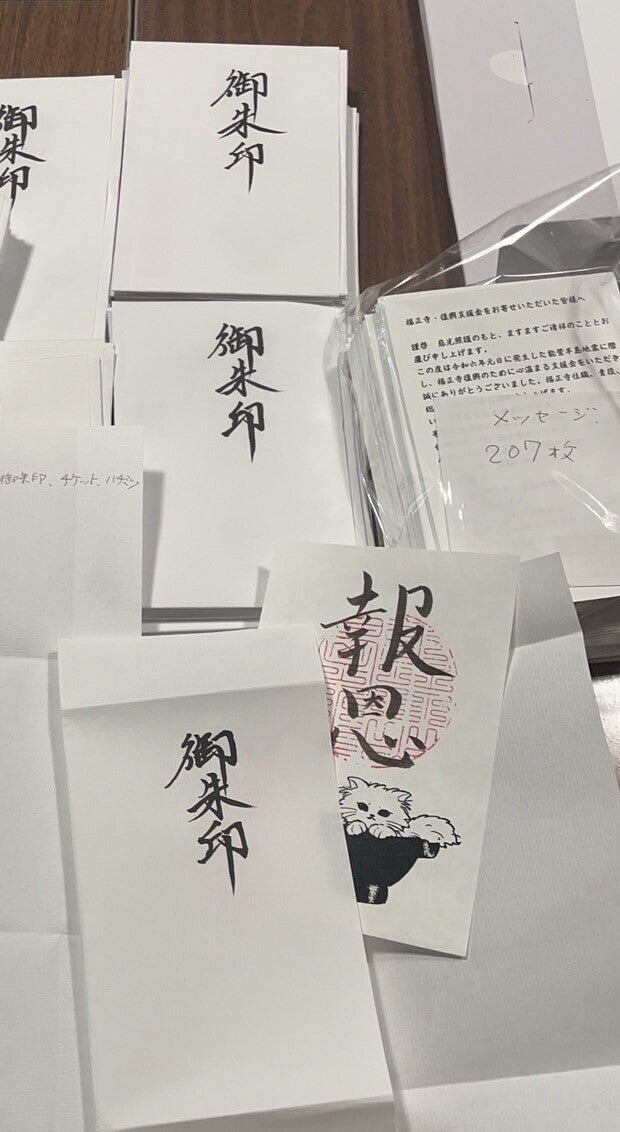 御朱印
御朱印
御朱印
福正寺・復興支援金をお寄せいただいた皆様へ
謹啓　慈光照護のもと、ますますご清祥のこととお
慶び申し上げます。
この度は令和六年元日に発生した能登半島地震に際
し、福正寺復興のために心温まる支援金をいただき
誠にありがとうございました。福正寺住職、責役、
メッセージ.
207枚
御朱印、チケット、ハチミツ
報恩
御朱印